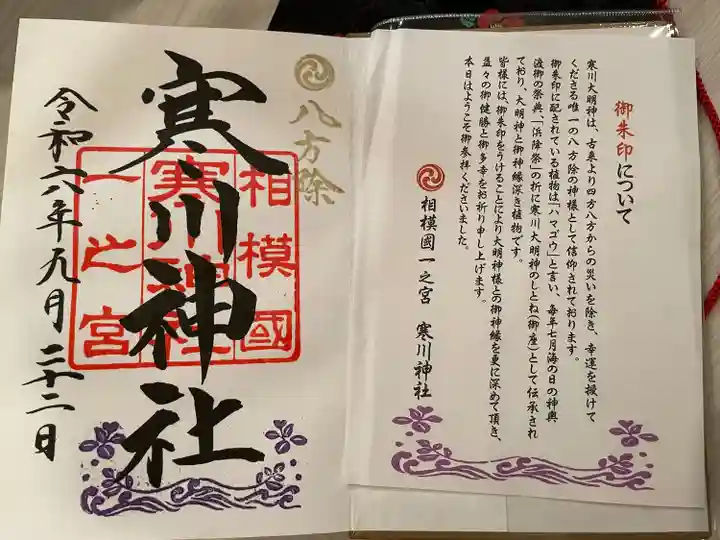 御朱印について
寒川大明神は、古来より四方八方からの災いを除き、幸運を授けて
くださる唯一の八方除の神様として信仰されております。
御朱印に配されている植物は「ハマゴウ」と言い、毎年七月海の日の神輿
渡御の祭典、「浜降祭」の折に寒川大明神のしとね(御座)として伝承され
ており、大明神と御神縁深き植物です。
皆様には、御朱印をうけることにより大明神様との御神縁を更に深めて頂き、
益々の御健勝と御多幸をお祈り申し上げます。
本日はようこそ御参拝くださいました。
相模國一之宮 寒川神社
八方除
寒川神社
相模國
寒川神社
一之宮
令和六年九月二十二日